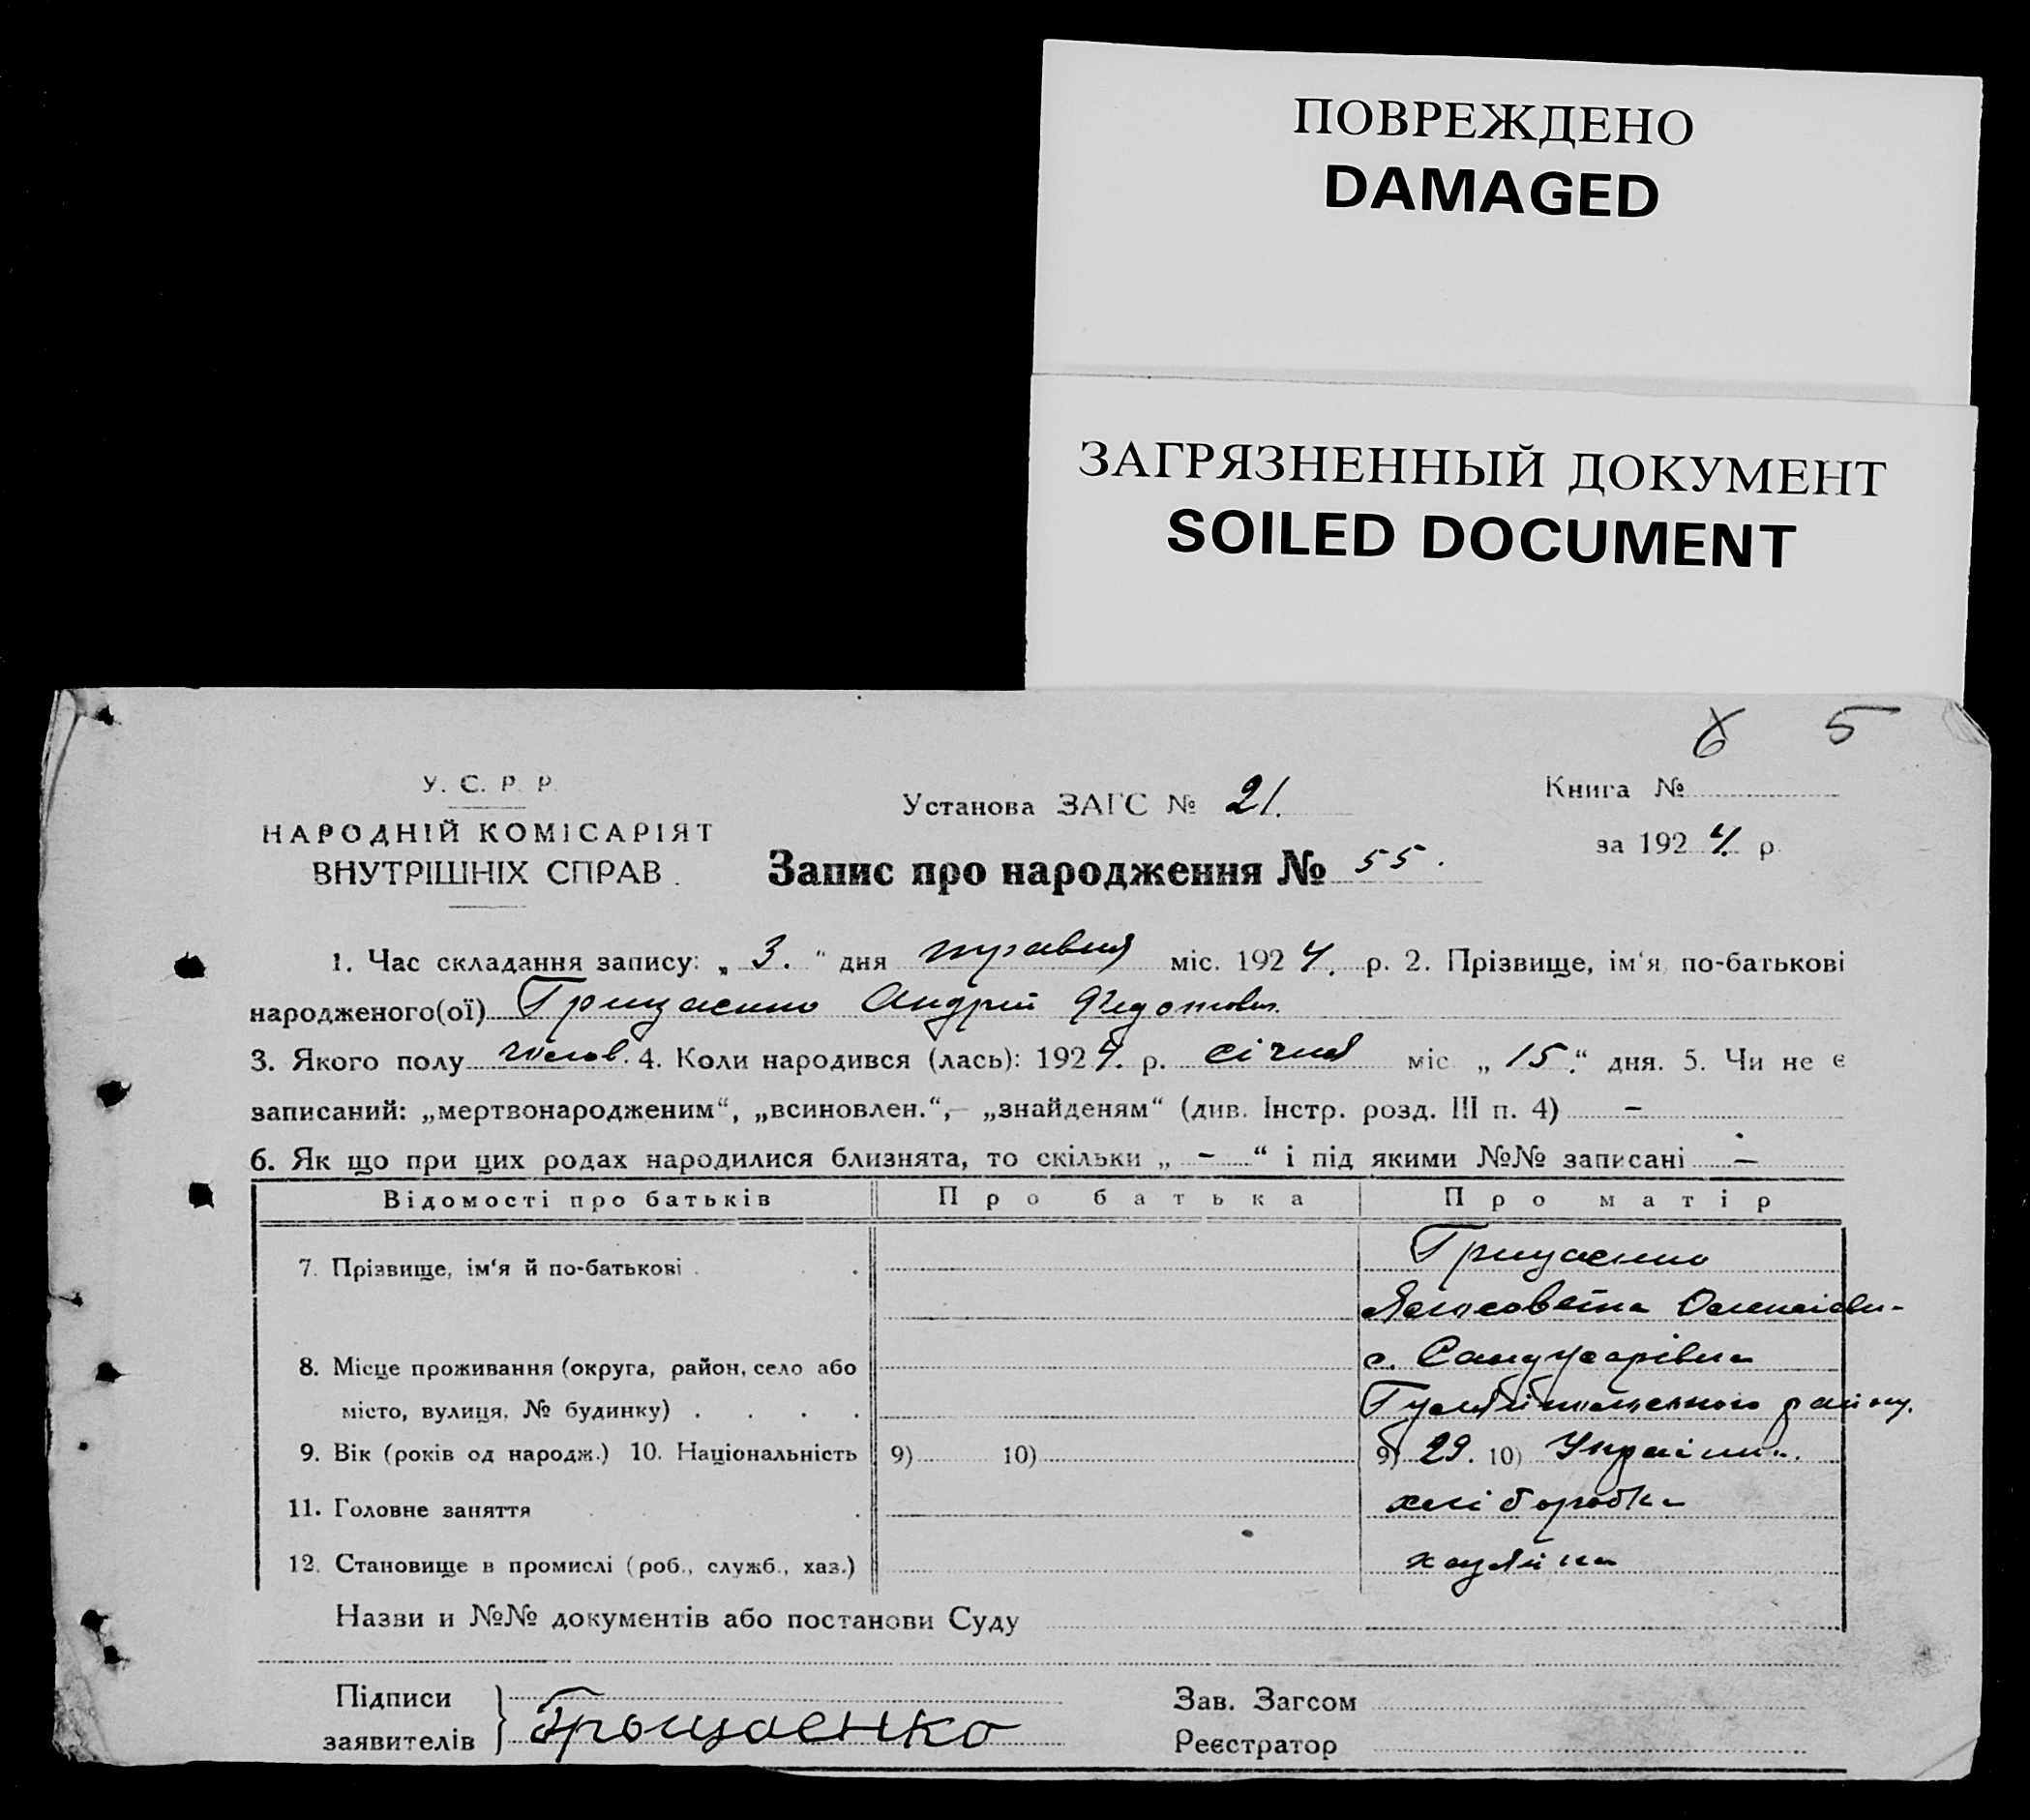 ПОВРЕЖДЕНО
DAMAGED
ЗАГРЯЗНЕННЫЙ ДОКУМЕНТ
SOILED DOCUMENT
6 5
У. С. Р. Р.
НАРОДНІЙ КОМІСАРІЯТ
ВНУТРІШНІХ СПРАВ.
Установа ЗАГС № 21.
Книга №
за 1924. р.
Запис про народження № 55.
1. Час складання запису: „3.“ дня травня міс. 1924. р. 2. Прізвище, ім'я, по-батькові
народженого(ої) Грицаенко Андрій Федотович.
3. Якого полу чолов. 4. Коли народився (лась): 1924. р. січня міс. „15.“ дня. 5. Чи не є
записаний: „мертвонародженим“, „всиновлен.“,– „знайденям“ (див. Інстр. розд. III п. 4) –
6. Як що при цих родах народилися близнята, то скільки „ – “ і під якими №№ записані –
Відомості про батьків Про батька Про матір
7. Прізвище, ім'я й по-батькові . . Грицаенко
8. Місце проживання (округа, район, село або с.
місто, вулиця, № будинку) . . . . району.
9. Вік (років од народж.) 10. Національність 9) 10) 9) 29. 10) Україн.
11. Головне заняття . хліборобка
12. Становище в промислі (роб., служб., хаз.) хазяйка
Назви и №№ документів або постанови Суду
Підписи
заявителів } Грыцаенко
Зав. Загсом
Реєстратор